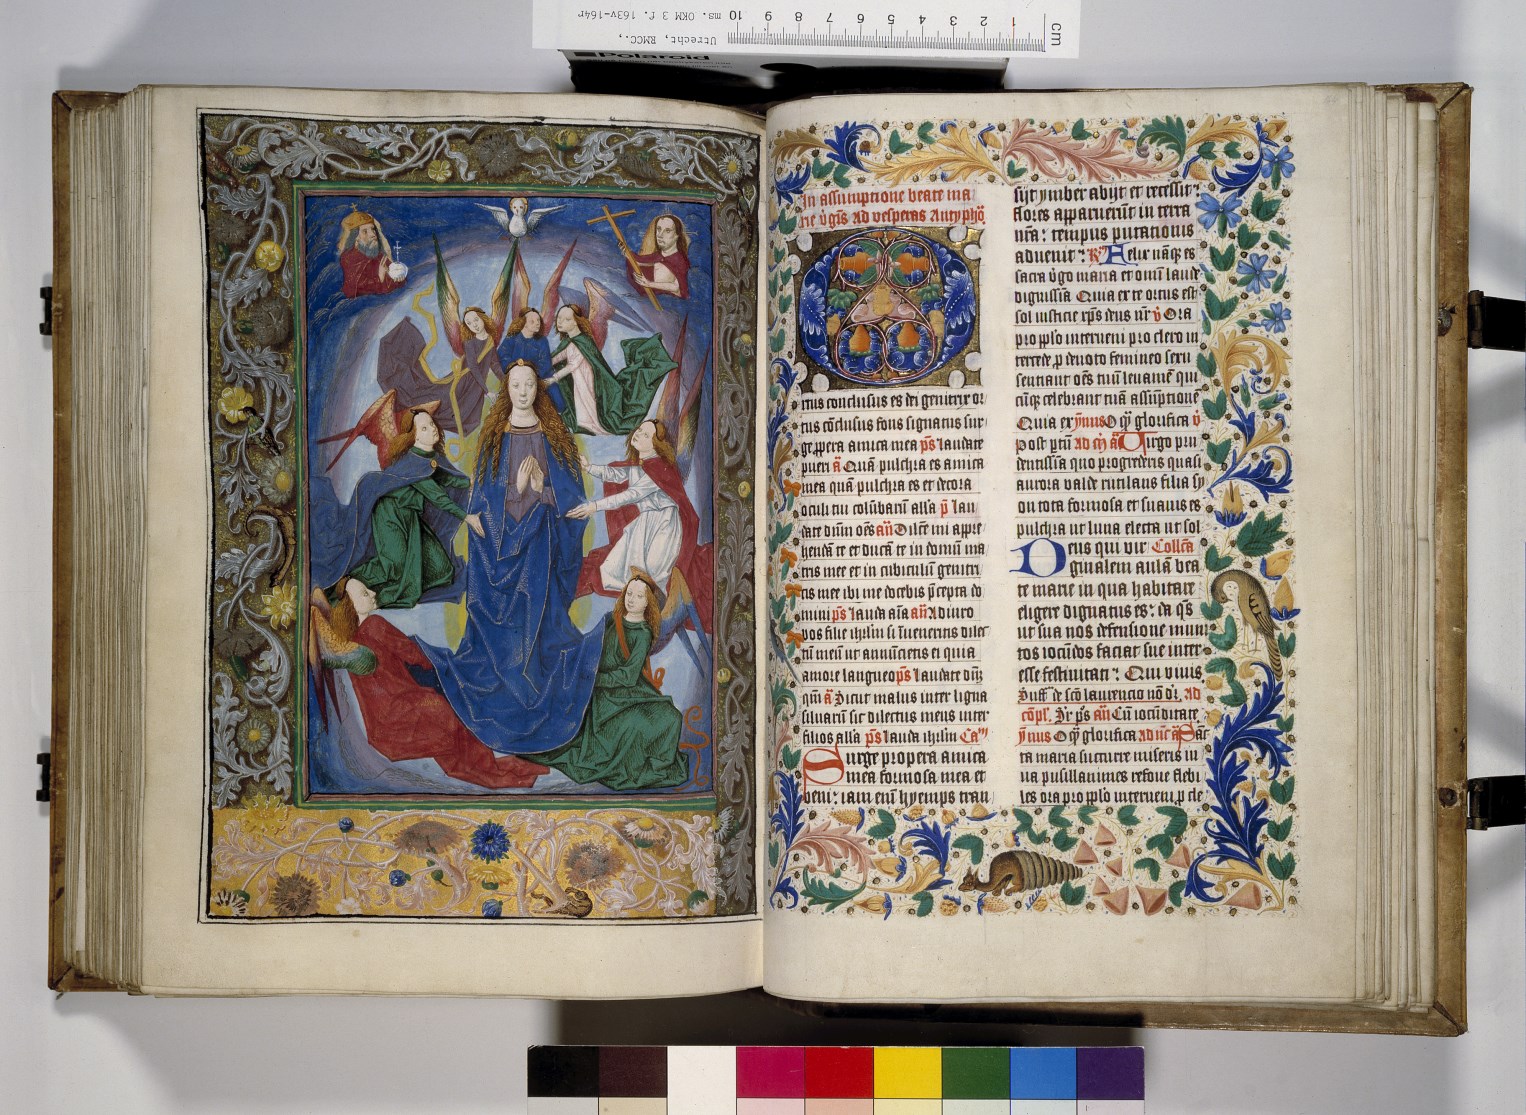 cm 1 2 3 4 5 6 7 8 9 10
Utrecht, RMCC.,
ms. OKM 3 f. 163v-164r
Polaroid
In assumptione beate ma
rie v̄gīs Ad vesperas Antypho᷒
O
rtus conclusus es dei genitrix or
tus cōclusus fons signatus sur
ge ppera amica mea p̄s laudate
pueri ā Quā pulchra es amica
mea quā pulchra es et decora
oculi tui colūbarū allā p̄ lau
date dūm oēs añ Dilcē mi appre
hendā te et ducā te in domū ma
tris mee et in cubiculū genitri
cis mee ibi me docebis p̄cepta do
mini p̄s lauda aīa añ Adiuro
vos filie ihrlm si īveneritis dilec
tū meū ut annūcietis ei quia
amore langueo p̄s laudate dūm
qm̄ ā Sicut malus inter ligna
silvarū sic dilectus meus inter
filios allā p̄s lauda ihrlm Cām
Surge propera amica
mea formosa mea et
veni: iam enī hyemps tran
sijt ymber abijt et recessit:
flores apparuerūt in terra
nr̄a: tempus putationis
advenit: R̄ Felix nāq̄ es
sacra v̄go maria et omni laude
dignissīa Quia ex te ortus est
sol iusticie xp̄s deus nr̄ v̄ Ora
pro pplo interveni pro clero in
tercede p devoto femineo sexu
sentiant oēs tuū levamē qui
cūq̄ celebrant tuā assūptionē
Quia ex ymnus O q̄ glorifica v̄
post ptū Ad m̄ ā Virgo pru
dentissīa quo progrederis quasi
aurora valde rutilans filia sy
on tota formosa et suavis es
pulchra ut luna electa ut sol
Deus qui vir Collcā
ginalem aulā bea
te marie in qua habitare
eligere dignatus es: da q̄s
ut sua nos defensione muni
tos iocūdos faciat sue inter
esse festivitati: Qui vivis
Suff de sc̄o laurencio nō dr̄. Ad
cōpl. Sr̄ p̄s añ Cū iocūditate
ymnus O q̄ glorifica Ad nūc ā Sāc
ta maria succurre miseris iu
va pusillanimes refove flebi
les ora pro pplo interveni p cle